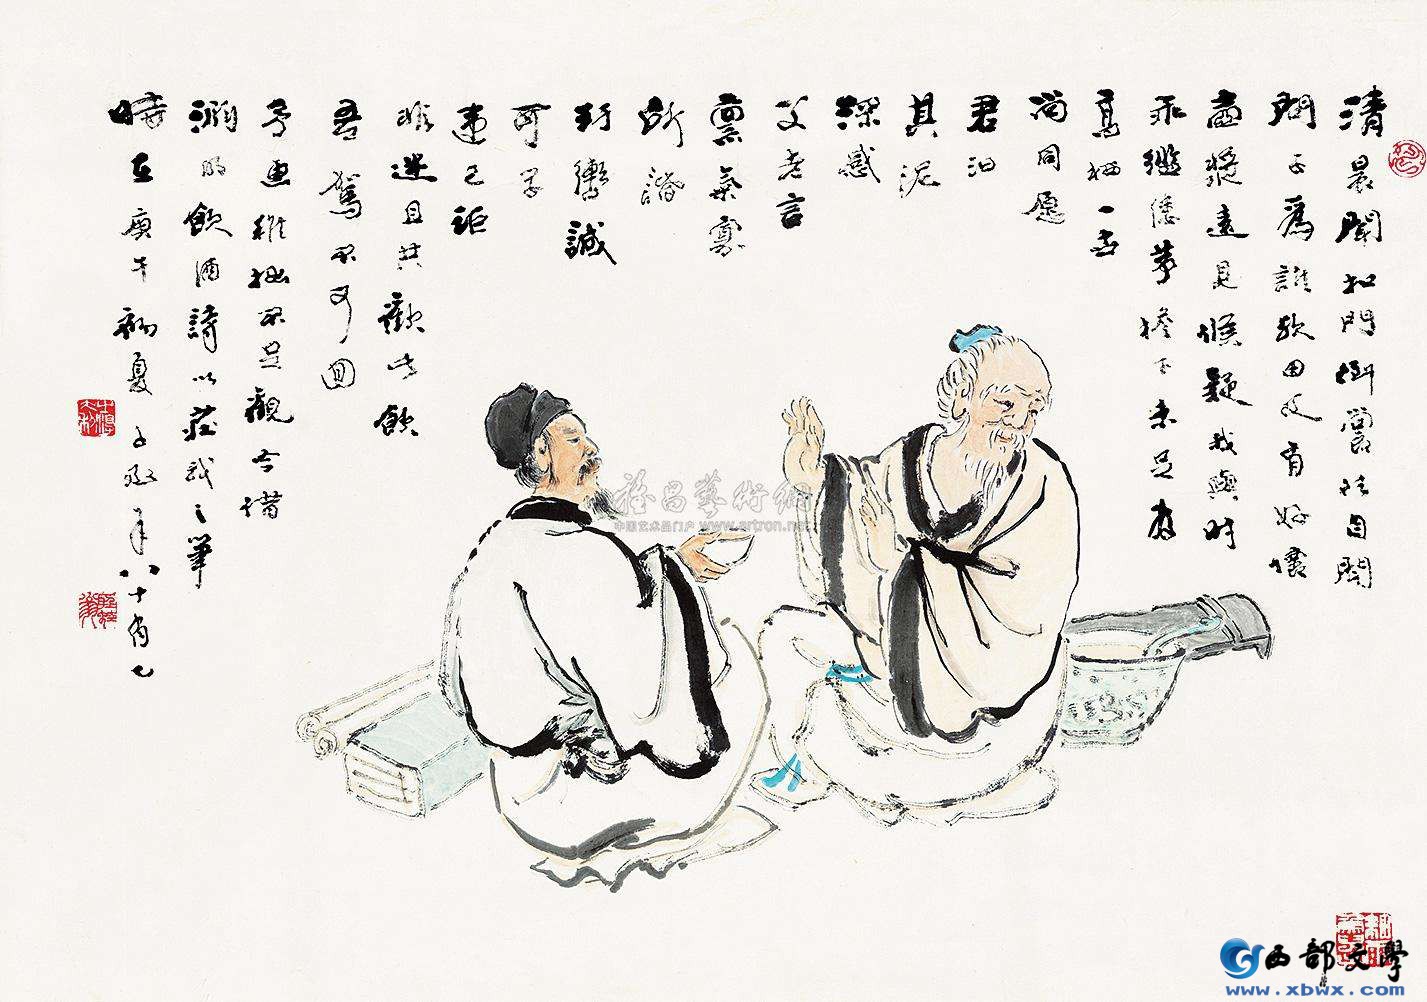 清晨聞扣門倒裳往自開
問子為誰歟田父有好懷
壺漿遠見候疑我與時
乖繿縷茅檐下未足為
高栖一世
尚同愿
君汩
其泥
深感
父老言
禀氣寡
所諧
紆轡誠
可學
違己詎
非迷且共歡此飲
吾駕不可回
予畫稚拙不足觀今借
淵明飲酒詩以莊我之筆
時在庚午初夏子年八十有七
雅昌藝術網
中国艺术品门户 www.artron.net
西部文學
www.xbwx.com